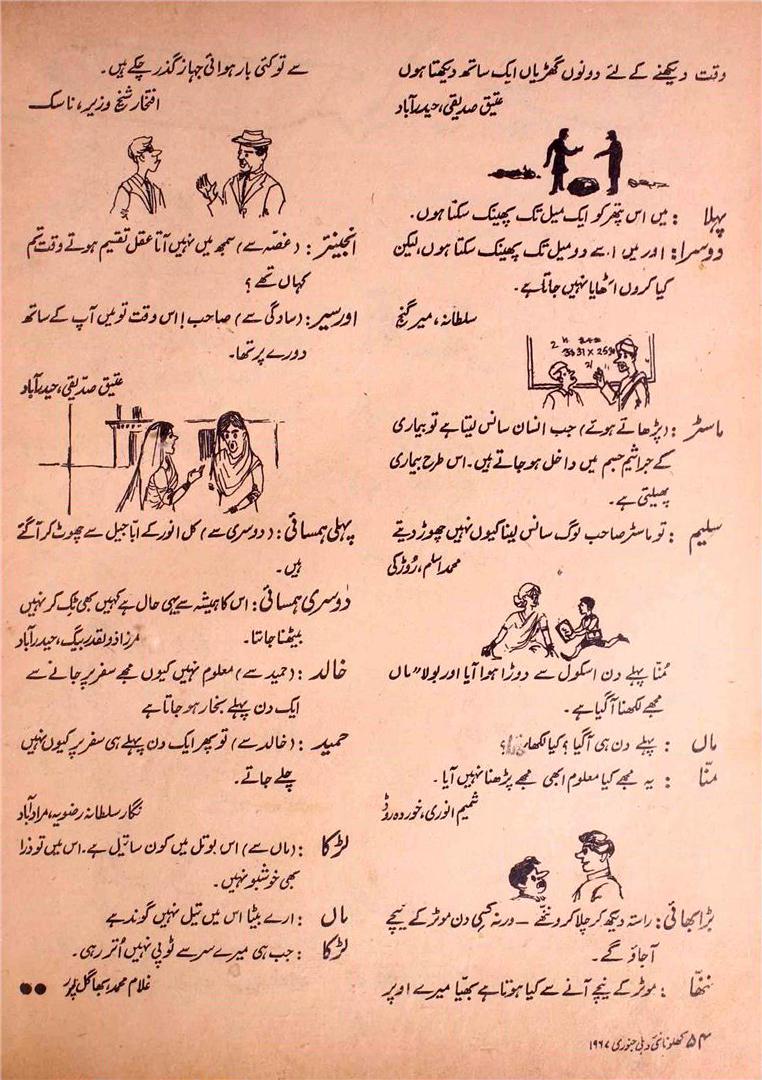 وقت دیکھنے کے لئے دونوں گھڑیاں ایک ساتھ دیکھتا ہوں
عتیق صدیقی، حیدرآباد
پہلا : میں اس پتھر کو ایک میل تک پھینک سکتا ہوں۔
دوسرا: اور میں اسے دو میل تک پھینک سکتا ہوں، لیکن
کیا کروں اٹھایا نہیں جاتا ہے۔
سلطانہ، میر گنج
ماسٹر : (پڑھاتے ہوئے) جب انسان سانس لیتا ہے تو بیماری
کے جراثیم جسم میں داخل ہو جاتے ہیں۔ اس طرح بیماری
پھیلتی ہے۔
سلیم : تو ماسٹر صاحب لوگ سانس لینا کیوں نہیں چھوڑ دیتے
محمد اسلم، روڑکی
مُنّا پہلے دن اسکول سے دوڑا ہوا آیا اور بولا "ماں
مجھے لکھنا آگیا ہے۔
ماں : پہلے دن ہی آگیا ؟ کیا لکھا
منّا : یہ مجھے کیا معلوم ابھی مجھے پڑھنا نہیں آیا۔
شمیم انوری، خوردہ روڈ
بڑا بھائی: راستہ دیکھ کر چلا کرو ننھے – ورنہ کسی دن موٹر کے نیچے
آجاؤ گے۔
ننھّا : موٹر کے نیچے آنے سے کیا ہوتا ہے بھیّا میرے اوپر
سے تو کئی بار ہوائی جہاز گذر چکے ہیں۔
افتخار شیخ وزیر، ناسک
انجینئر : (غصّہ سے) سمجھ میں نہیں آتا عقل تقسیم ہوتے وقت تم
کہاں تھے ؟
اورسیر: (سادگی سے) صاحب! اس وقت تو میں آپ کے ساتھ
دورے پر تھا۔
عتیق صدّیقی، حیدرآباد
پہلی ہمسائی : (دوسری سے) کل انور کے ابّا جیل سے چھوٹ کر آگئے
ہیں۔
دوسری ہمسائی : اس کا ہمیشہ سے یہی حال ہے کہیں بھی ٹک کر نہیں
بیٹھنا جانتا۔ مرزا ذولقدر بیگ، حیدرآباد
خالد : (حمید سے) معلوم نہیں کیوں مجھے سفر پر جانے سے
ایک دن پہلے بخار ہو جاتا ہے
حمید : (خالد سے) تو پھر ایک دن پہلے ہی سفر پر کیوں نہیں
چلے جاتے۔
نگار سلطانہ رضویہ، مرادآباد
لڑکا : (ماں سے) اس بوتل میں کون سا تیل ہے۔ اس میں تو ذرا
بھی خوشبو نہیں۔
ماں : ارے بیٹا اس میں تیل نہیں گوند ہے
لڑکا : جب ہی میرے سر سے ٹوپی نہیں اُتر رہی۔
غلام محمد، بھاگل پور
۵۴ کھلونا نئی دہلی جنوری ۱۹۶۷